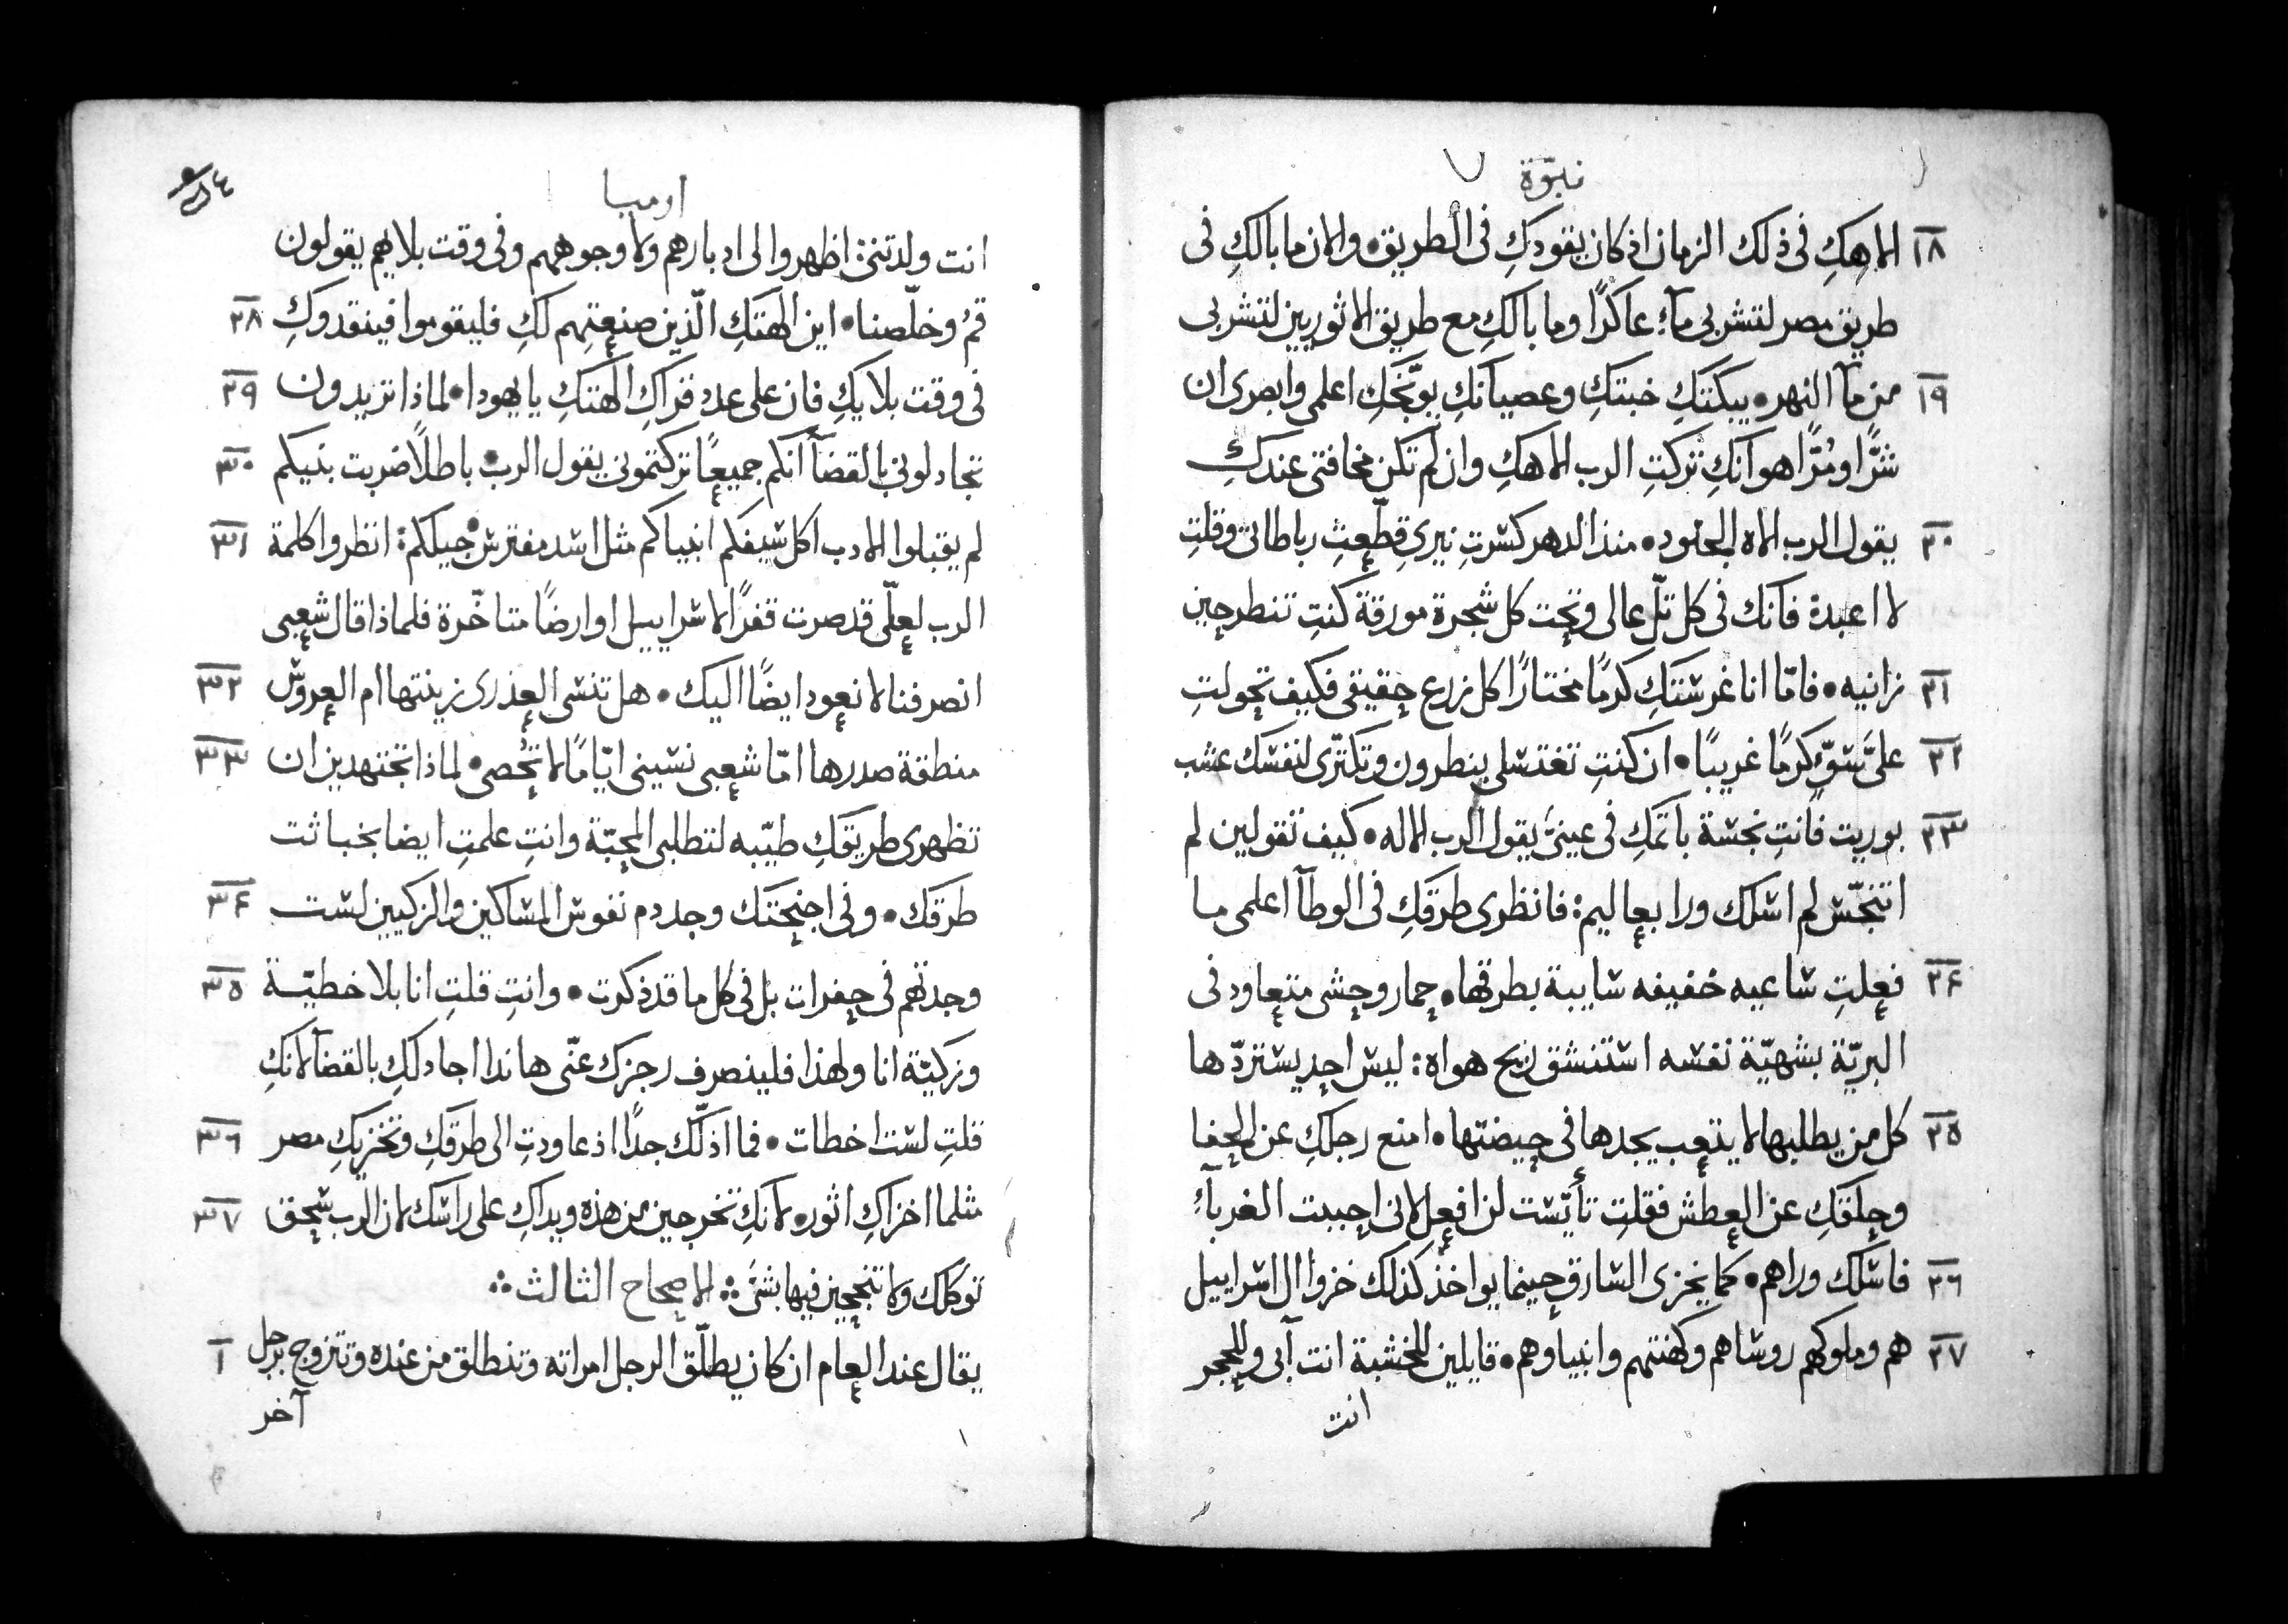 نبوّة
١٨ الاهكِ فى ذلك الزمان اذ كان يقودكِ فى الطريق • والان ما بالكِ فى
طريق مصر لتشربى مآءً عاكرًا وما بالكِ مع طريق الاثوريين لتشربى
١٩ من مآ النهر • يبكتكِ خبتكِ وعصيانكِ يوبّخكِ اعلمى وابصرى ان
شرًّا ومُرًّا هو انكِ تركتِ الرب الاهكِ وان لم تكن مخافتى عندكِ
٢٠ يقول الرب الاه الجنود • منذ الدهر كسرتِ نيرى قطّعتِ رباطاتى وقلتِ
لا اعبدة فانك فى كل تلّ عالى وتحت كل شجرة مورقة كنتِ تنطرحين
٢١ زانيه • فامّا انا غرستكِ كرمًا مختارًا كل زرع حقيقى فكيف تحولتِ
٢٢ علىَّ سَوّءٍ كرمًا غريبًا • ان كنتِ تغتسلى بنطرون وتكثرى لنفسك عشب
٢٣ بوريت فانتِ نجسة باثمكِ فى عينىَّ يقول الرب الاله • كيف تقولين لم
اتنجّس لم اسلك ورا بعاليم : فانظرى طرقكِ فى الوطآ اعلمى ما
٢٤ فعلتِ ساعيه خفيفه سايبة بطرقها • حمار وحشى متعاود فى
البريّة بشهيّة نفسه استنشق ريح هواه : ليس احد يستردّها
٢٥ كل من يطلبها لا يتعب يجدها فى حيضتها • امنع رجلكِ عن الحفا
وحلقكِ عن العطش فقلتِ تأيّست لن افعل لانى احببت الغربآءِ
٢٦ فاسلك وراهم • كما يخزى السارق حينما يواخذ كذلك خزوا ال اسراييل
٢٧ هم وملوكهم روساهم وكهنتهم وانبياوهم • قايلين للخشبة انت آبى وللحجر
انت
اوميا
انت ولدتنى : اظهروا الى ادبارهم ولا وجوههم وفى وقت بلايهم يقولون
قمُ وخلّصنا • اين الهتكِ الّذين صنعتِهم لكِ فليقوموا فينقدوكِ ٢٨
فى وقت بلايكِ فان على عدد قراكِ الهتكِ يا يهودا • لماذا تريدون ٢٩
تجادلونى بالقضآ انكم جميعًا تركتمونى يقول الرب • باطلًا ضربت بنيكم ٣٠
لم يقبلوا الادب اكل سيفكم انبياكم مثل اسد مفترس جيلكم : انظروا كلمة ٣١
الرب لعلّى قد صرت قفرًا لاسراييل او ارضًا متاخّرة فلماذا قال شعبى
انصرفنا لا نعود ايضًا اليك • هل تنسى العذرى زينتها ام العروس ٣٢
منطقة صدرها امّا شعبى نسينى ايّامًا لا تُحصى • لماذا تجتهدين ان ٣٣
تظهرى طريقكِ طيّبه لتطلبى المحبّة وانتِ علمتِ ايضا بخباثت
طرقك • وفى اجنحتك وجد دم نفوس المساكين والزكيين لست ٣٤
وجدتهم فى حفرات بل فى كل ما قد ذكرت • وانتِ قلتِ انا بلا خطيّة ٣٥
وزكيّة انا ولهذا فلينصرف رجزك عنّى هاندا اجادلكِ بالقضآ لانكِ
قلتِ لست اخطات • فما اذلّك جدًا اذ عاودتِ الى طرقكِ وتخزيكِ مصر ٣٦
مثلما اخزاكِ اثور • لانكِ تخرجين من هذه ويداكِ على راسك لان الرب سحق ٣٧
توكلك ولا تنجحين فيها بشىَ : الاصحاح الثالث :
يقال عند العام ان كان يطلّق الرجل امراته وتنطلق من عنده وتتزوج برجل ١
آخر